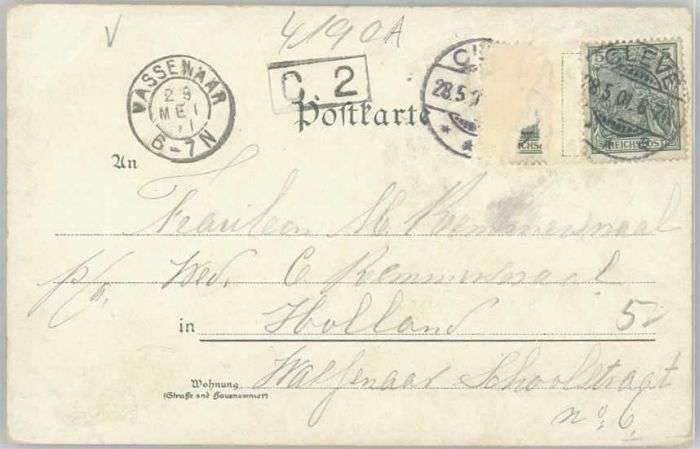 V
4190A
WASSENAAR
29
MEI
6-7N
C. 2
Postkarte
CLEVE
28.5.01
5
REICHSPOST
An
Fraulein M Remmerswaal
p/a. Wed. C Remmerswaal
in Holland 52
Wohnung
(Straße und Hausnummer)
Wassenaar Schoolstraat
no. 6